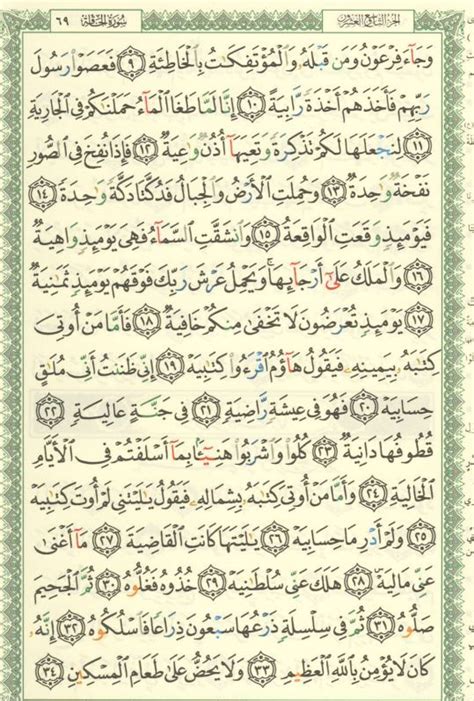 الجزء التاسع والعشرون سورة الحاقة ٦٩
وَجَآءَ فِرْعَوْنُ وَمَن قَبْلَهُۥ وَٱلْمُؤْتَفِكَٰتُ بِٱلْخَاطِئَةِ ﴿٩﴾ فَعَصَوْا۟ رَسُولَ
رَبِّهِمْ فَأَخَذَهُمْ أَخْذَةً رَّابِيَةً ﴿١٠﴾ إِنَّا لَمَّا طَغَا ٱلْمَآءُ حَمَلْنَٰكُمْ فِى ٱلْجَارِيَةِ
﴿١١﴾ لِنَجْعَلَهَا لَكُمْ تَذْكِرَةً وَتَعِيَهَآ أُذُنٌ وَٰعِيَةٌ ﴿١٢﴾ فَإِذَا نُفِخَ فِى ٱلصُّورِ
نَفْخَةٌ وَٰحِدَةٌ ﴿١٣﴾ وَحُمِلَتِ ٱلْأَرْضُ وَٱلْجِبَالُ فَدُكَّتَا دَكَّةً وَٰحِدَةً ﴿١٤﴾
فَيَوْمَئِذٍ وَقَعَتِ ٱلْوَاقِعَةُ ﴿١٥﴾ وَٱنشَقَّتِ ٱلسَّمَآءُ فَهِىَ يَوْمَئِذٍ وَاهِيَةٌ
﴿١٦﴾ وَٱلْمَلَكُ عَلَىٰٓ أَرْجَآئِهَا ۚ وَيَحْمِلُ عَرْشَ رَبِّكَ فَوْقَهُمْ يَوْمَئِذٍ ثَمَٰنِيَةٌ
﴿١٧﴾ يَوْمَئِذٍ تُعْرَضُونَ لَا تَخْفَىٰ مِنكُمْ خَافِيَةٌ ﴿١٨﴾ فَأَمَّا مَنْ أُوتِىَ
كِتَٰبَهُۥ بِيَمِينِهِۦ فَيَقُولُ هَآؤُمُ ٱقْرَءُوا۟ كِتَٰبِيَهْ ﴿١٩﴾ إِنِّى ظَنَنتُ أَنِّى مُلَٰقٍ
حِسَابِيَهْ ﴿٢٠﴾ فَهُوَ فِى عِيشَةٍ رَّاضِيَةٍ ﴿٢١﴾ فِى جَنَّةٍ عَالِيَةٍ ﴿٢٢﴾
قُطُوفُهَا دَانِيَةٌ ﴿٢٣﴾ كُلُوا۟ وَٱشْرَبُوا۟ هَنِيٓـًٔۢا بِمَآ أَسْلَفْتُمْ فِى ٱلْأَيَّامِ
ٱلْخَالِيَةِ ﴿٢٤﴾ وَأَمَّا مَنْ أُوتِىَ كِتَٰبَهُۥ بِشِمَالِهِۦ فَيَقُولُ يَٰلَيْتَنِى لَمْ أُوتَ كِتَٰبِيَهْ
﴿٢٥﴾ وَلَمْ أَدْرِ مَا حِسَابِيَهْ ﴿٢٦﴾ يَٰلَيْتَهَا كَانَتِ ٱلْقَاضِيَةَ ﴿٢٧﴾ مَآ أَغْنَىٰ
عَنِّى مَالِيَهْ ﴿٢٨﴾ هَلَكَ عَنِّى سُلْطَٰنِيَهْ ﴿٢٩﴾ خُذُوهُ فَغُلُّوهُ ﴿٣٠﴾ ثُمَّ ٱلْجَحِيمَ
صَلُّوهُ ﴿٣١﴾ ثُمَّ فِى سِلْسِلَةٍ ذَرْعُهَا سَبْعُونَ ذِرَاعًا فَٱسْلُكُوهُ ﴿٣٢﴾ إِنَّهُۥ
كَانَ لَا يُؤْمِنُ بِٱللَّهِ ٱلْعَظِيمِ ﴿٣٣﴾ وَلَا يَحُضُّ عَلَىٰ طَعَامِ ٱلْمِسْكِينِ ﴿٣٤﴾